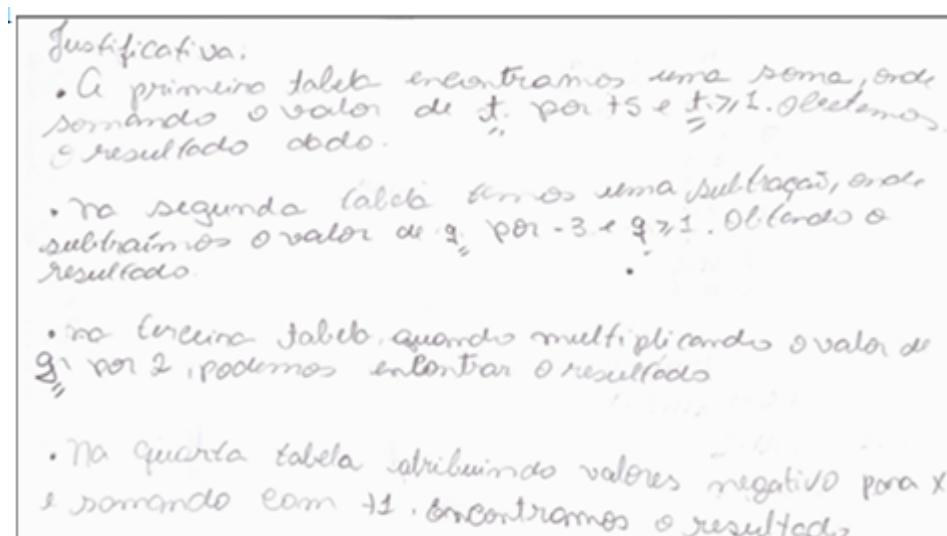 Justificativa.
• A primeira tabela encontramos uma soma, onde
somando o valor de t. por +5 e t ⩾ 1. Obtemos
o resultado dado.
• na segunda tabela temos uma subtração, onde
subtraímos o valor de q por -3 e q ⩾ 1. Obtendo o
resultado.
• na terceira tabela, quando multiplicando o valor de
g por 2, podemos encontrar o resultado
• Na quarta tabela atribuindo valores negativo para x
e somando com +1. encontramos o resultado